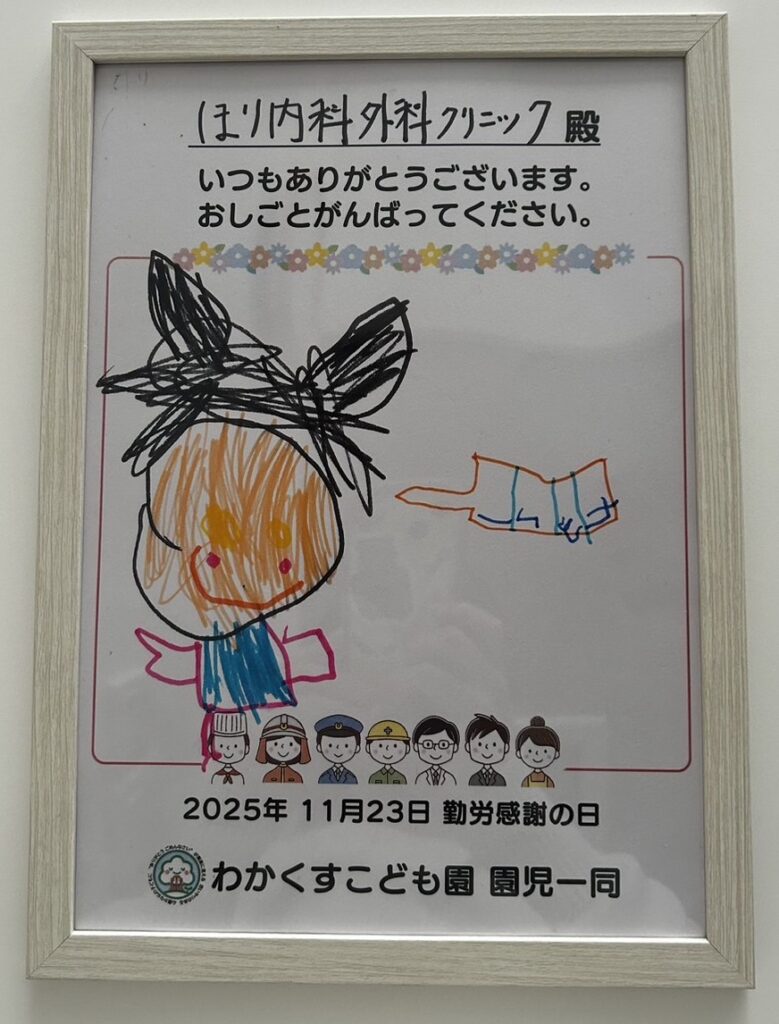 ほり内科外科クリニック 殿
いつもありがとうございます。
おしごとがんばってください。
2025年 11月23日 勤労感謝の日
わかくすこども園 園児一同